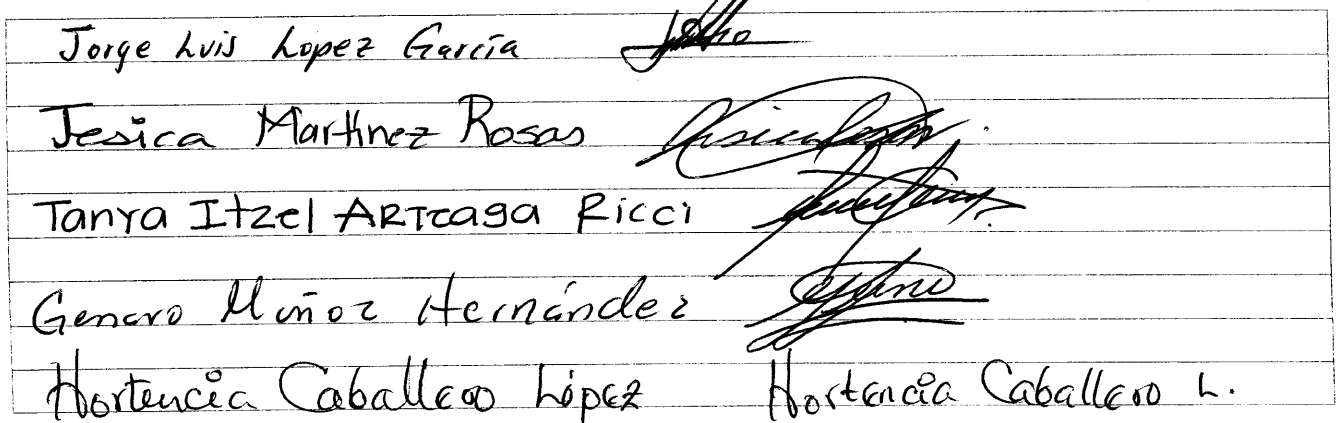 Jorge Luis Lopez García
Jesica Martinez Rosas
Tanya Itzel ARTEaga Ricci
Genaro Muñoz Hernández
Hortencia Caballero López Hortencia Caballero L.